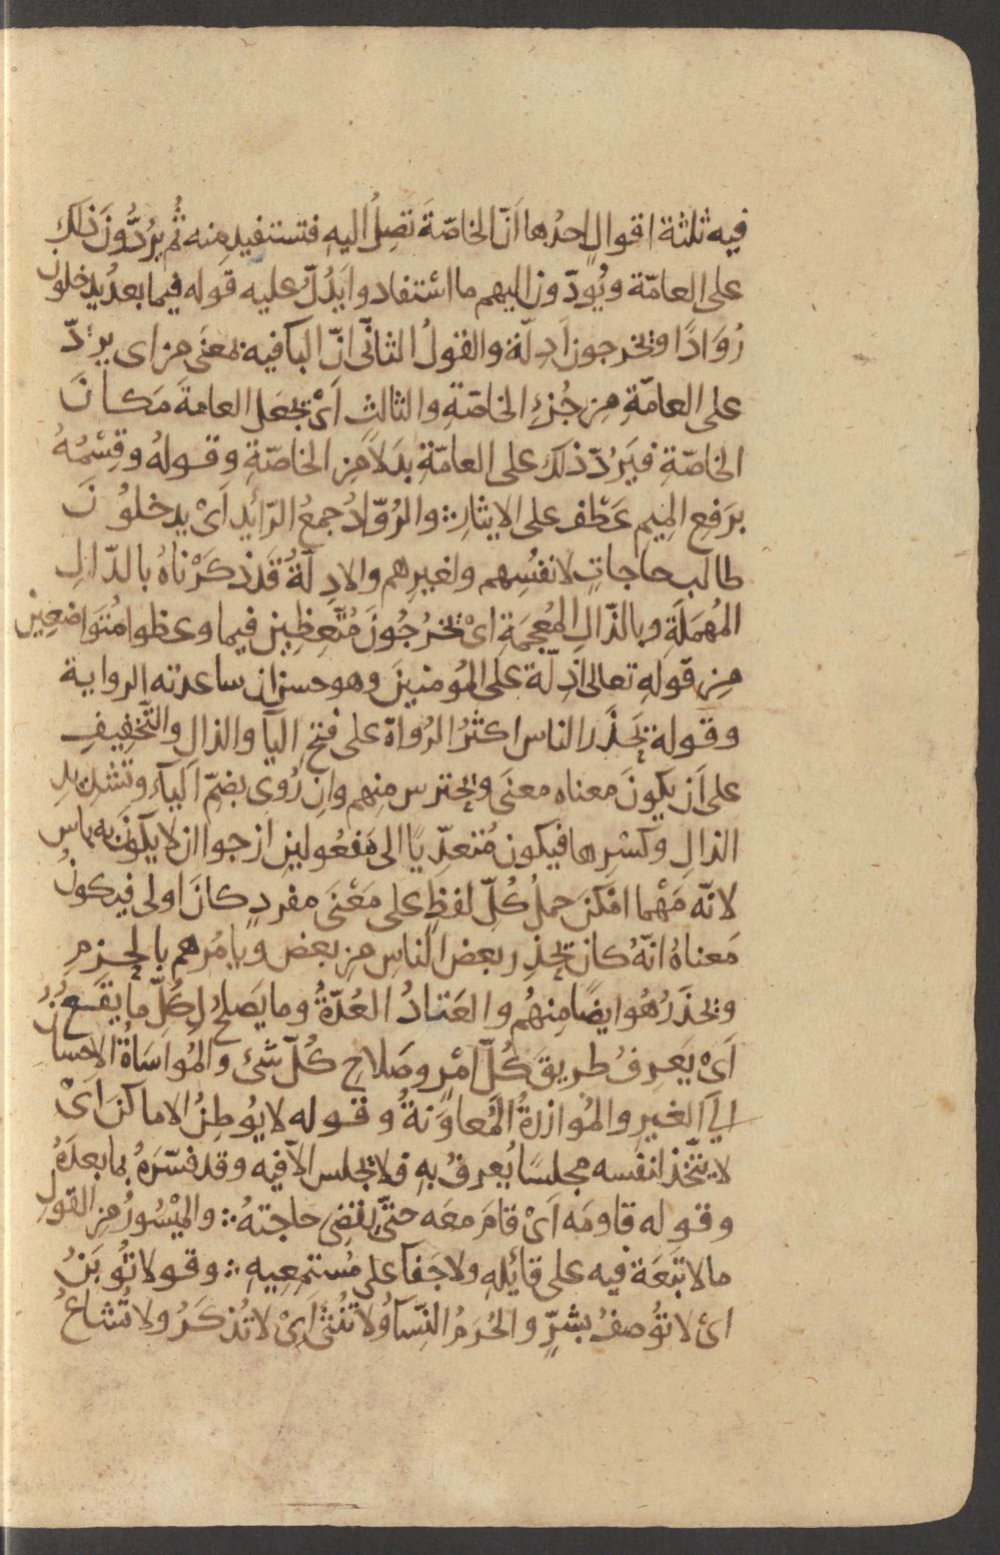 فيه ثلثة اقوالٍ احدُها اَنّ الخاصّةَ تصِلُ اليهِ فتستفيد منه ثُم يرُدُّونَ ذلك
على العامّة ويُودّون اليهم ما استفادوا يَدُلّ عليه قوله فيما بعدُ يدخلون
رُوّادًا ويخرجون اَدِلّة والقولُ الثانّى انّ البا فيه بمعنَى من اى يردّ
على العامّةِ مِن جُزءِ الخاصّةِ والثالث اَىْ يجعَل العامةَ مَكانَ
الخاصّةِ فيَرُدّ ذلك على العامّةِ بدَلاً مِن الخاصّةِ وقوله وقِسْمُهُ
برَفعِ المِيم عَطْف على الايثارِ ∴ والرُوّادُ جمعُ الرّائدِ اَىْ يدخلوُنَ
طالب حاجاتٍ لانفسُِهم ولغيرِهم والادِلّةُ قد ذكَرْناهُ بالدّالِ
المُهمَلَةِ وبالذّالِ المُعجَمَةِ اىْ يخرُجُونَ مُتّعِظِين فيما وعظوا مُتَواضعِين
مِن قولِهِ تعالى اذِلّة على المُومنينَ وهو حسن ان ساعدته الرواية
وقوله يَحْذَر الناس اكثرُ الرُواة على فتحِ اليآ والذال والتّخفِيفِ
على اَن يكونَ معناه معنَى ويحترس منِهم واِن رُوى بضمّ اليآء وتشديدِ
الذالِ وكَسْرِها فيكون مُتعدّيًا الى مَفعُولينِ ارجوا ان لا يكونَ به باس
لانّه مَهْما امْكنَ حملُ كُلّ لفظٍ على مَعْنَى مفردٍ كانَ اولى فيكونُ
مَعناهُ انّهُ كانَ يُحذّر بعضَ الناسِ مِن بعض ويامُرهم بالحَزمِ
ويحذَرُ هُو ايضًا مِنهُم والعَتادُ العُدّةُ وما يَصلحُ لِكُلّ ما يقَعُ ∴
اَىْ يَعرِفُ طريقَ كُلّ امْرٍ وصَلاحِ كُلّ شئ والمُواسَاةُ الاحسان
الى الغيرِ والمُوازرةُ المُعاوَنةُ وقوله لا يُوطِنُ الاماكنَ اَىْ
لا يتّخذ لنفسه مجلسًا يُعرفُ بهِ فلا يجلس الاّ فيه وقد فسّرَهُ بما بعدَهُ
وقوله قاومَه اَىْ قامَ معَه حتّى يقضِى حاجتهُ ∴ والميْسُورُ مِن القولِ
ما لا تبَعَة فيه على قائلِهِ ولا جَفآ على مُستمِعِيهِ ∴ وقوله لا تُوبَنُ
اىْ لا توُصفُ بشرٍّ والحُرَمُ النِّسآءُ ولا تُنثَى اَىْ لا تُذكَرُ ولا تُشاعُ